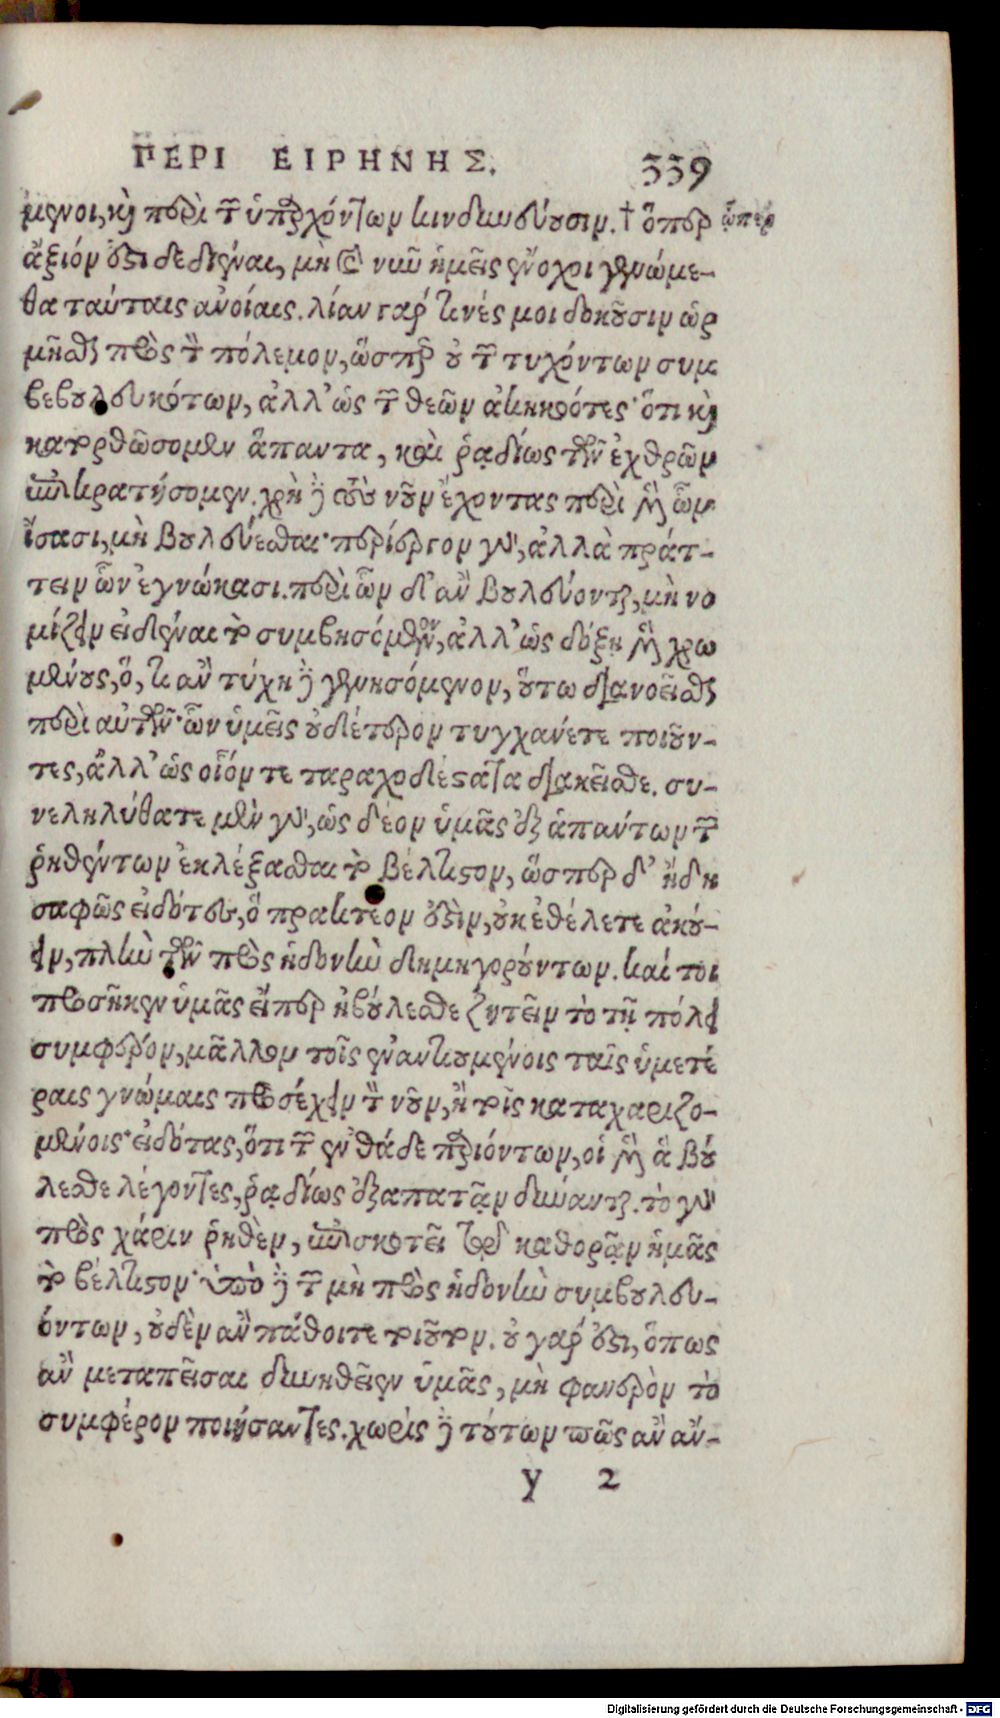 ΠΕΡΙ ΕΙΡΗΝΗΣ. 339
μενοι, καὶ περὶ τῶν ὑπαρχόντων κινδυνεύουσιν. † ὅπερ ὧπερ
ἄξιόν ἐστι δεδιέναι, μὴ καὶ νῦν ἡμεῖς ἔνοχοι γενώμε-
θα ταύταις ἀνοίαις. λίαν γάρ τινές μοι δοκοῦσιν ὡρ
μῆσθαι πρὸς τὸν πόλεμον, ὥσπερ οὐ τῶν τυχόντων συμ
βεβουλευκότων, ἀλλ' ὡς τῶν θεῶν ἀκηκοότες· ὅτι καὶ
κατορθώσομεν ἅπαντα, καὶ ῥᾳδίως τῶν ἐχθρῶν
ἐπικρατήσομεν. χρὴ δὲ τοὺς νοῦν ἔχοντας περὶ μὲν ὧν
ἴσασι, μὴ βουλεύεσθαι· περίεργον γάρ, ἀλλὰ πράτ-
τειν ὧν ἐγνώκασι. περὶ ὧν δ' ἂν βουλεύονται, μὴ νο
μίζειν εἰδέναι τὸ συμβησόμενον, ἀλλ' ὡς δόξῃ μὲν χρω
μένους, ὅ, τι ἂν τύχῃ δὲ γενησόμενον, οὕτω διανοεῖσθαι
περὶ αὐτῶν· ὧν ὑμεῖς οὐδέτερον τυγχάνετε ποιοῦν-
τες, ἀλλ' ὡς οἷόν τε ταραχοδέστατα διακεῖσθε. συ-
νεληλύθατε μὲν γάρ, ὡς δέον ὑμᾶς ἐξ ἁπάντων τῶν
ῥηθέντων ἐκλέξασθαι τὸ βέλτιστον, ὥσπερ δ' ἤδη
σαφῶς εἰδότες, ὅ πρακτέον ἐστὶν, οὐκ ἐθέλετε ἀκού-
ειν, πλὴν τῶν πρὸς ἡδονὴν δημηγορούντων. καί τοι
προσῆκεν ὑμᾶς εἴπερ ἠβούλεσθε ζητεῖν τὸ τῇ πόλει
συμφέρον, μᾶλλον τοῖς ἐναντιουμένοις ταῖς ὑμετέ
ραις γνώμαις προσέχειν τὸν νοῦν, ἢ τοῖς καταχαριζο-
μένοις· εἰδότας, ὅτι τῶν ἐνθάδε παριόντων, οἱ μὲν ἃ βού
λεσθε λέγοντες, ῥᾳδίως ἐξαπατᾷν δύνανται. τὸ γὰρ
πρὸς χάριν ῥηθὲν, ἐπισκοτεῖ τοῦ καθορᾷν ἡμᾶς
τὸ βέλτιστον· ὑπὸ δὲ τῶν μὴ πρὸς ἡδονὴν συμβουλευ-
όντων, οὐδὲν ἂν πάθοιτε τοιοῦτον. οὐ γάρ ἐστι, ὅπως
ἂν μεταπεῖσαι δυνηθεῖεν ὑμᾶς, μὴ φανερὸν τὸ
συμφέρον ποιήσαντες. χωρὶς δὲ τούτων πῶς ἂν ἄν-
y 2
Digitalisierung gefördert durch die Deutsche Forschungsgemeinschaft - DFG